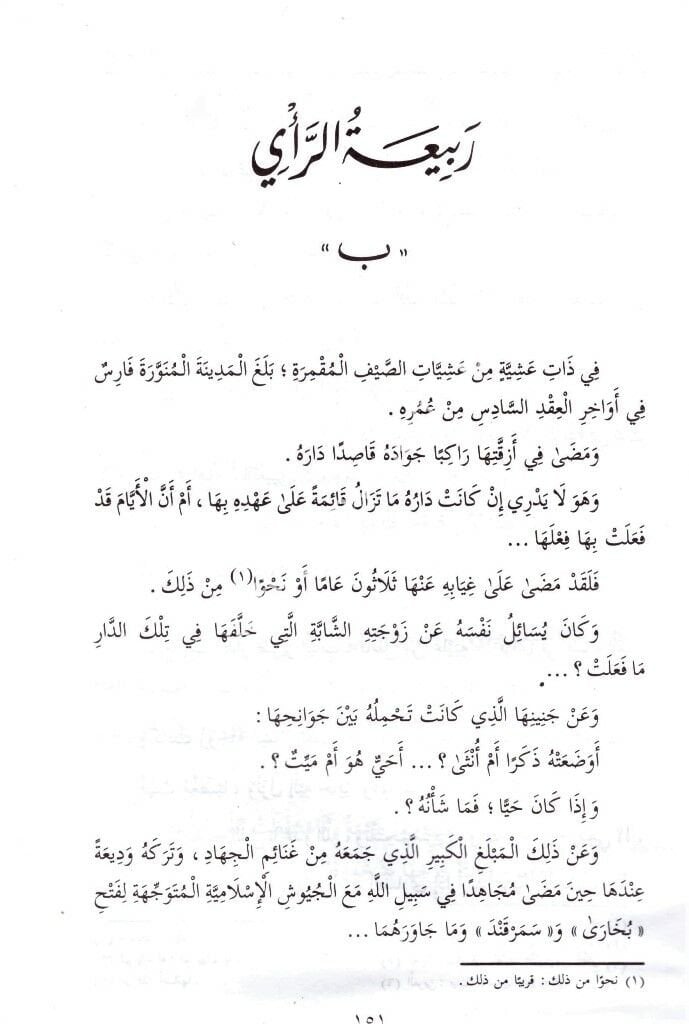 رَبِيعَةُ الرَّأْيِ
« ب »
فِي ذَاتِ عَشِيَّةٍ مِنْ عَشِيَّاتِ الصَّيْفِ الْمُقْمِرَةِ ؛ بَلَغَ الْمَدِينَةَ الْمُنَوَّرَةَ فَارِسٌ
فِي أَوَاخِرِ الْعِقْدِ السَّادِسِ مِنْ عُمُرِهِ .
وَمَضَىٰ فِي أَزِقَّتِهَا رَاكِبًا جَوَادَهُ قَاصِدًا دَارَهُ .
وَهوَ لَا يَدْرِي إِنْ كَانَتْ دَارُهُ مَا تَزَالُ قَائِمَةً عَلَىٰ عَهْدِهِ بِهَا ، أَمْ أَنَّ الْأَيَّامَ قَدْ
فَعَلَتْ بِهَا فِعْلَهَا ...
فَلَقَدْ مَضَىٰ عَلَىٰ غِيَابِهِ عَنْهَا ثَلَاثُونَ عَامًا أَوْ نَحْوًا(١) مِنْ ذَلِكَ .
وَكَانَ يُسَائِلُ نَفْسَهُ عَنْ زَوْجَتِهِ الشَّابَّةِ الَّتِي خَلَّفَهَا فِي تِلْكَ الدَّارِ
مَا فَعَلَتْ ؟ ...
وَعَنْ جَنِينِهَا الَّذِي كَانَتْ تَحْمِلُهُ بَيْنَ جَوَانِحِهَا :
أَوَضَعَتْهُ ذَكَرًا أَمْ أُنْثَىٰ ؟ ... أَحَيٌّ هُوَ أَمْ مَيِّتٌ ؟ .
وَإِذَا كَانَ حَيًّا ؛ فَمَا شَأْنُهُ ؟ .
وَعَنْ ذَلِكَ الْمَبْلَغِ الْكَبِيرِ الَّذِي جَمَعَهُ مِنْ غَنَائِمِ الْجِهَادِ ، وَتَرَكَهُ وَدِيعَةً
عِنْدَهَا حِينَ مَضَىٰ مُجَاهِدًا فِي سَبِيلِ اللَّهِ مَعَ الْجُيُوشِ الْإِسْلَامِيَّةِ الْمُتَوَجِّهَةِ لِفَتْحِ
« بُخَارَىٰ » وَ« سَمَرْقَنْدَ » وَمَا جَاوَرَهُمَا ...
(١) نحوًا من ذلك : قريبًا من ذلك .
١٥١